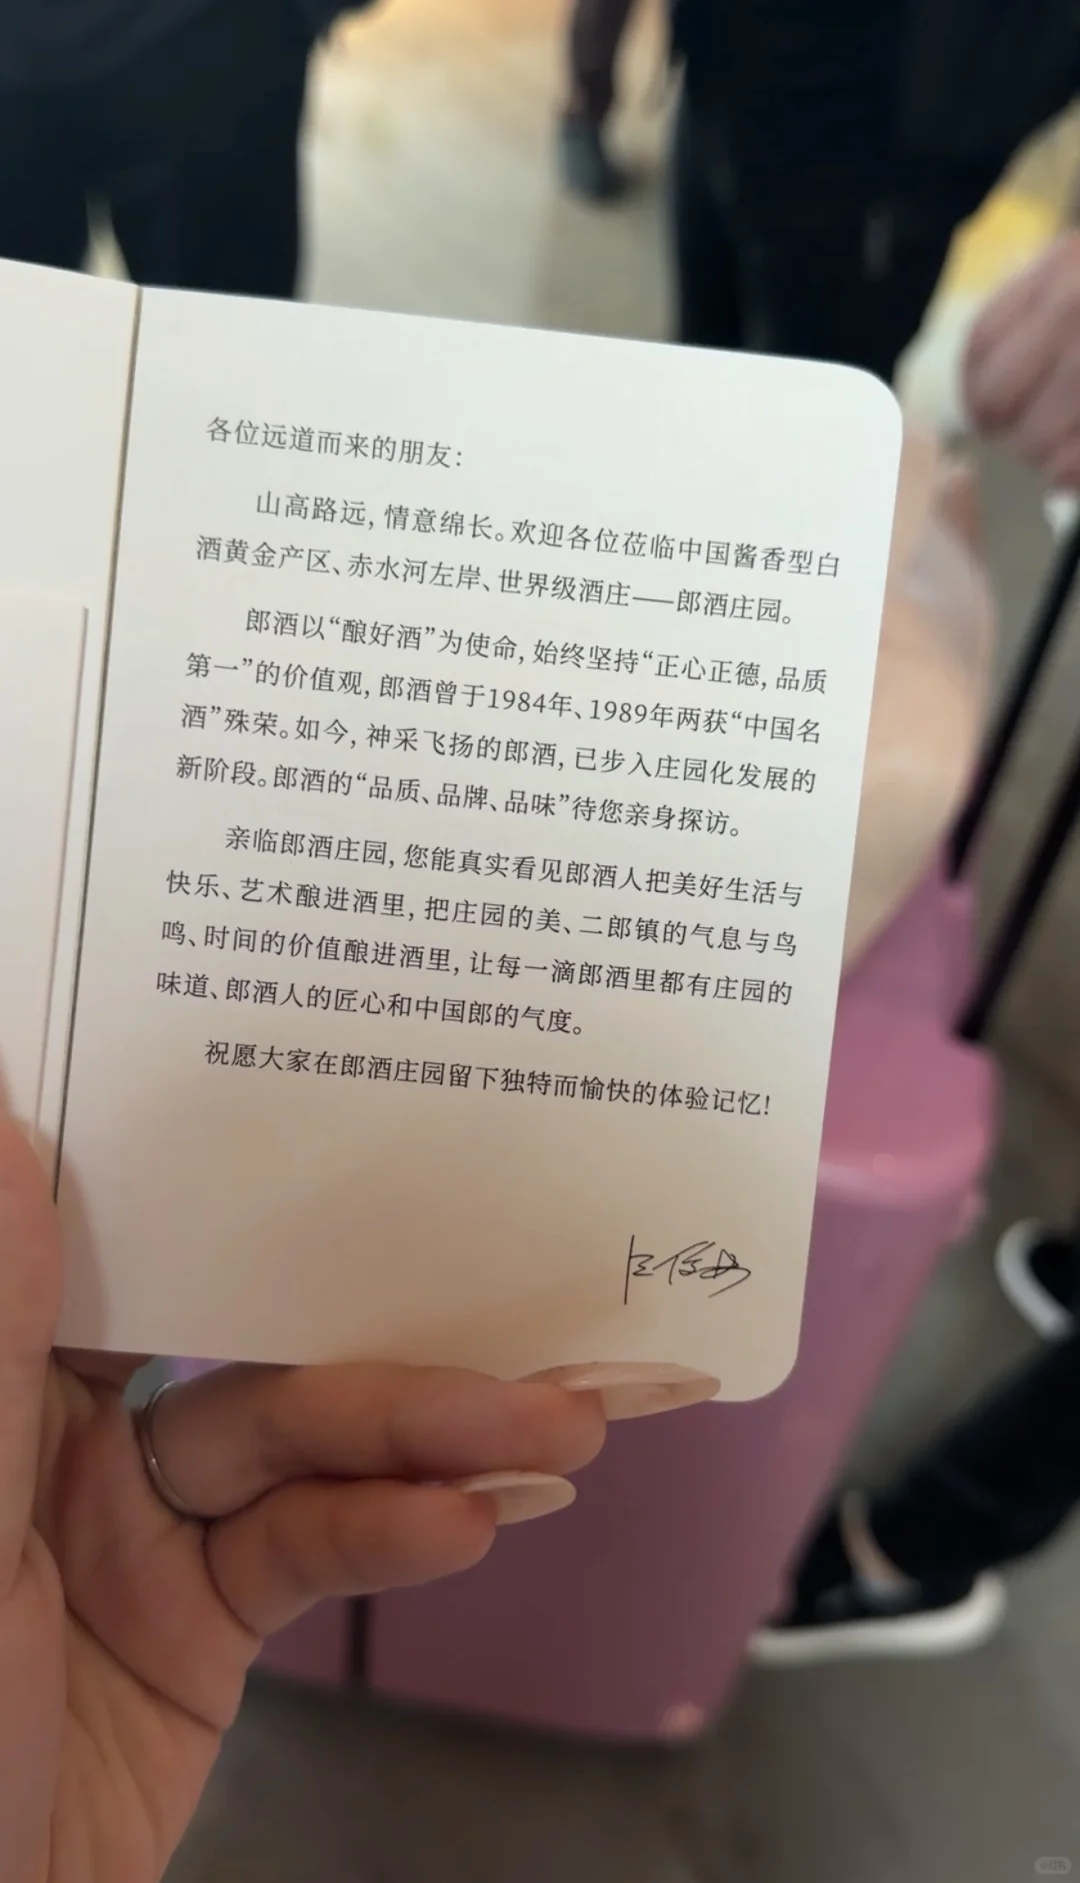 各位远道而来的朋友：
山高路远，情意绵长。欢迎各位莅临中国酱香型白
酒黄金产区、赤水河左岸、世界级酒庄——郎酒庄园。
郎酒以“酿好酒”为使命，始终坚持“正心正德，品质
第一”的价值观，郎酒曾于1984年、1989年两获“中国名
酒”殊荣。如今，神采飞扬的郎酒，已步入庄园化发展的
新阶段。郎酒的“品质、品牌、品味”待您亲身探访。
亲临郎酒庄园，您能真实看见郎酒人把美好生活与
快乐、艺术酿进酒里，把庄园的美、二郎镇的气息与鸟
鸣、时间的价值酿进酒里，让每一滴郎酒里都有庄园的
味道、郎酒人的匠心和中国郎的气度。
祝愿大家在郎酒庄园留下独特而愉快的体验记忆！
小红书